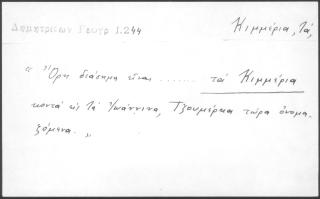 Δημητριέων Γεωγρ 1.244
Κιμμέρια, τά,
" Ὄρη διάσημα εἶναι ....... τά Κιμμέρια
κοντά εἰς τά Ἰωάννινα, Τζουμέρκα τώρα ὀνομα-
ζόμενα. "